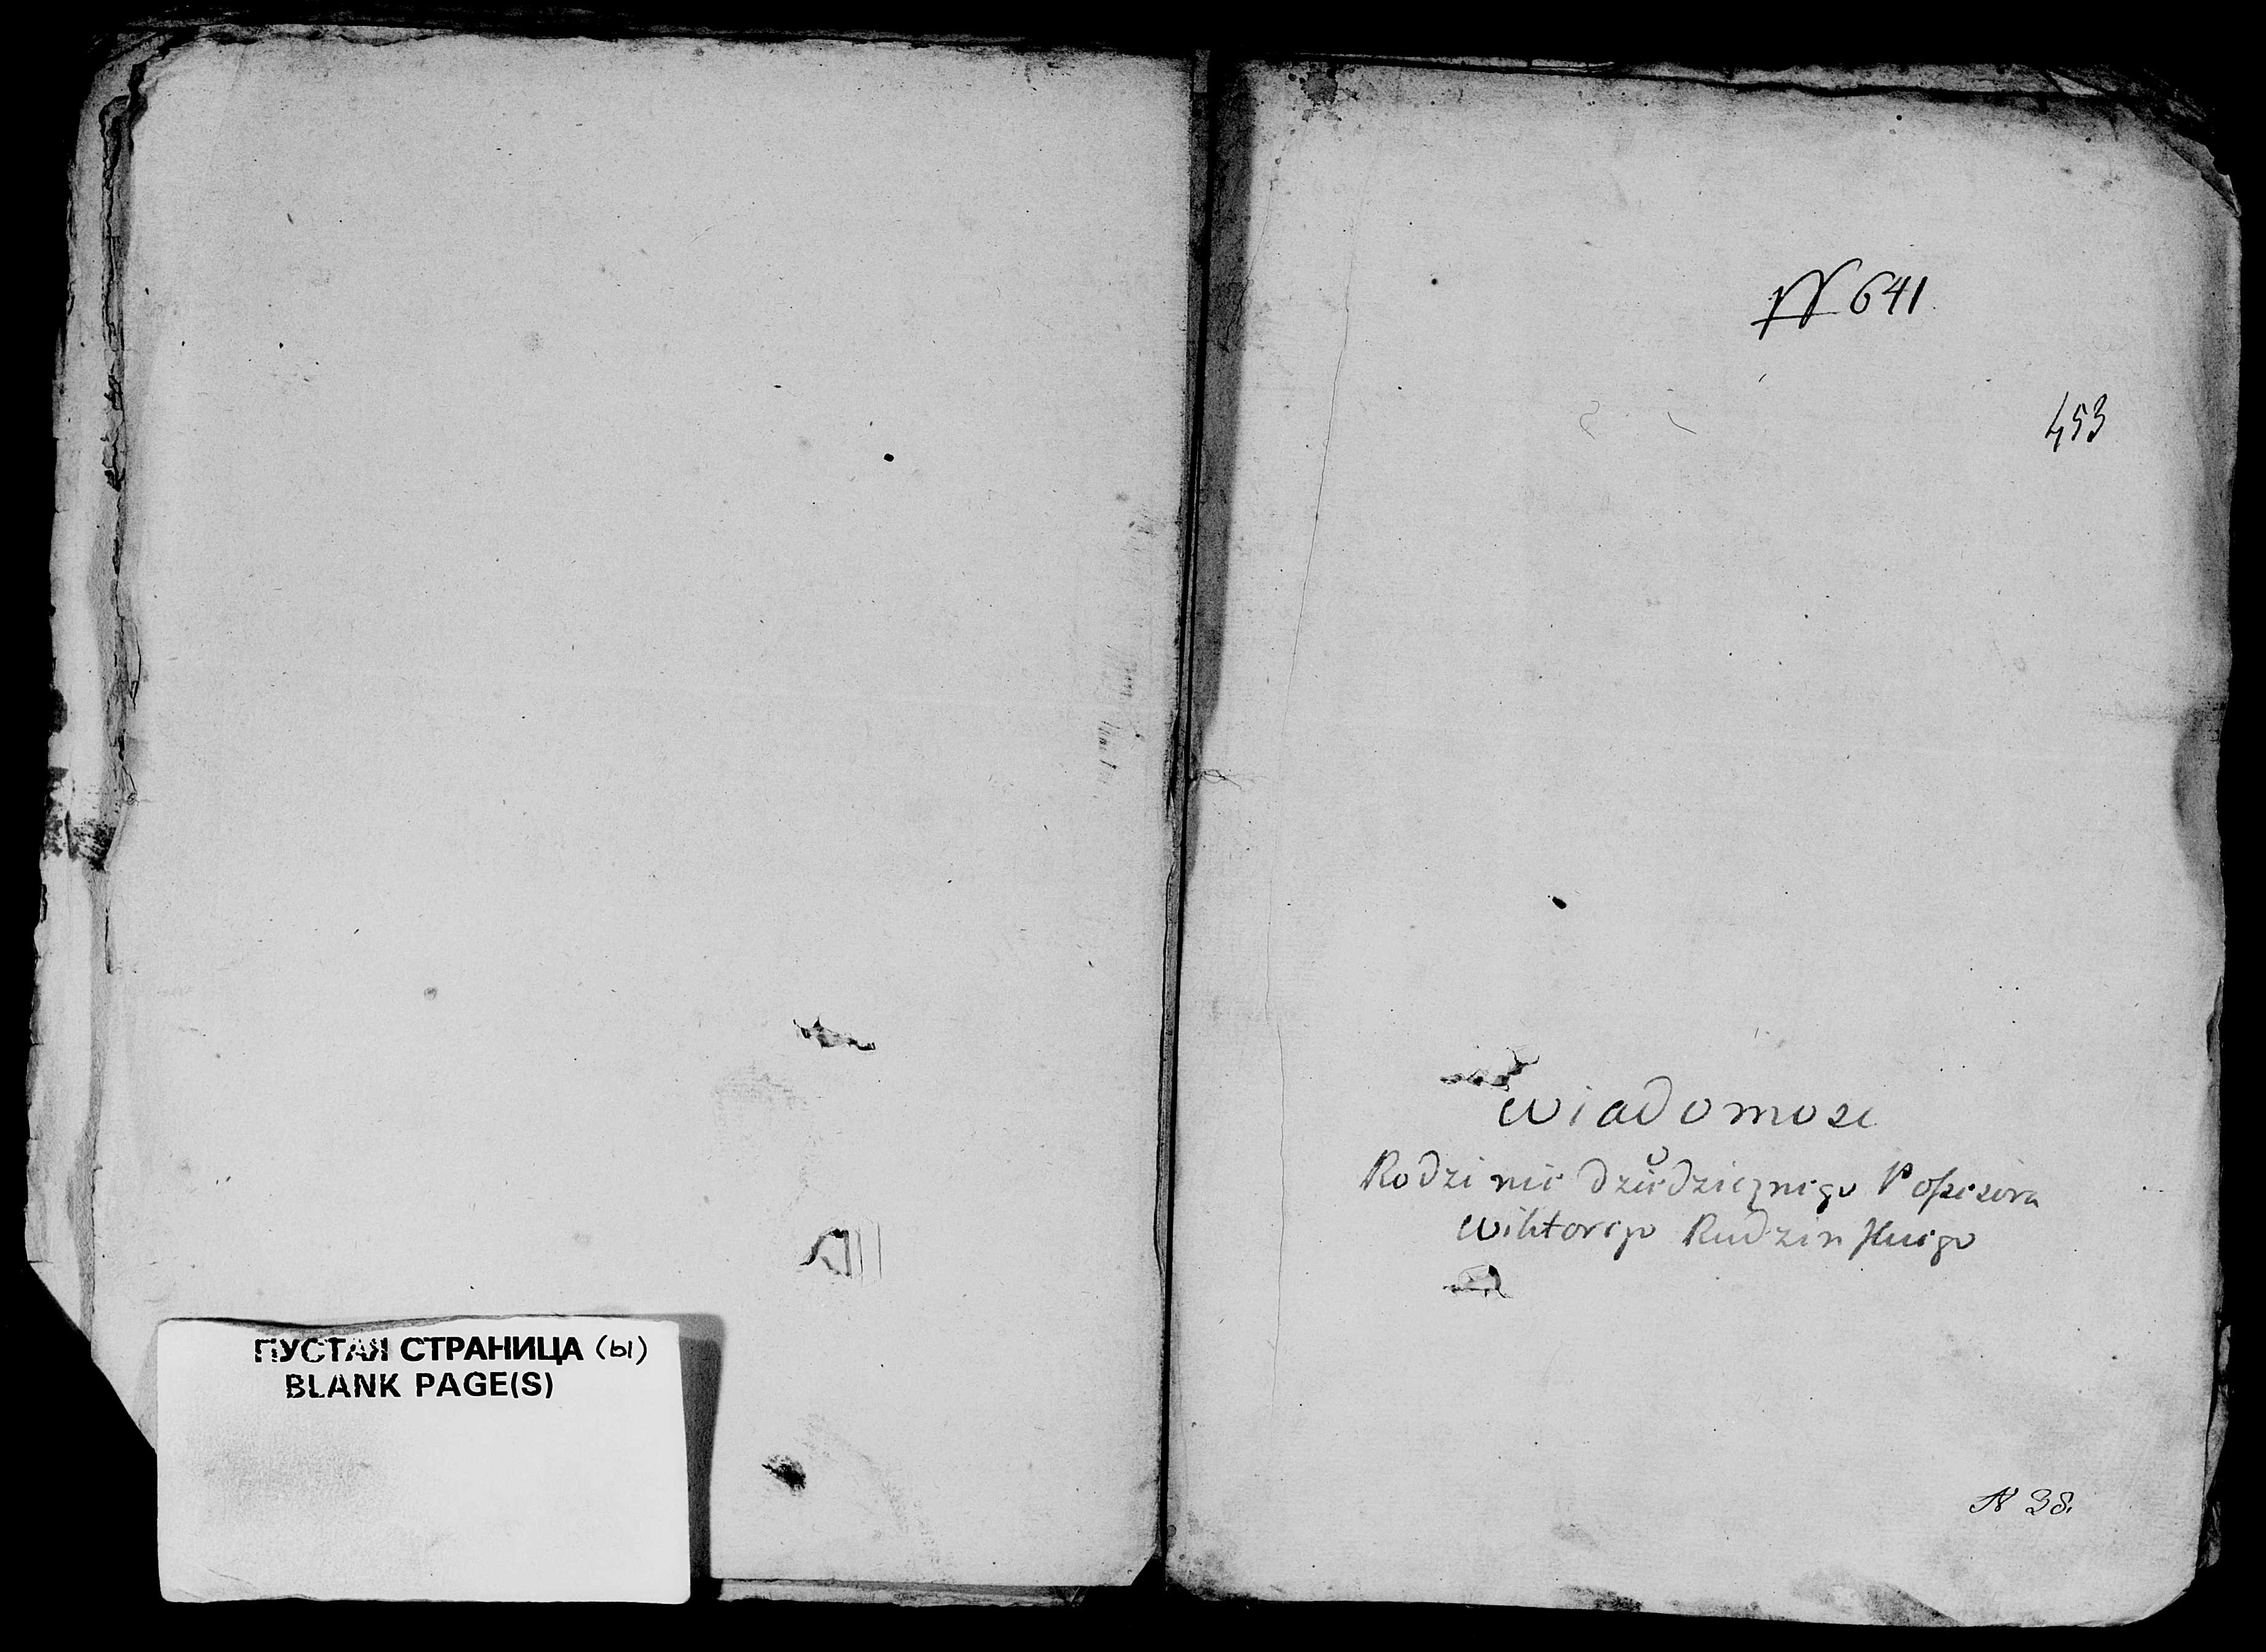 ПУСТАЯ СТРАНИЦА (ы)
BLANK PAGE(S)
№ 641
453
Wiadomosc
Rodzinie dziedzicznego Possesora
Wiktorego Rudzinskiego
N 38.